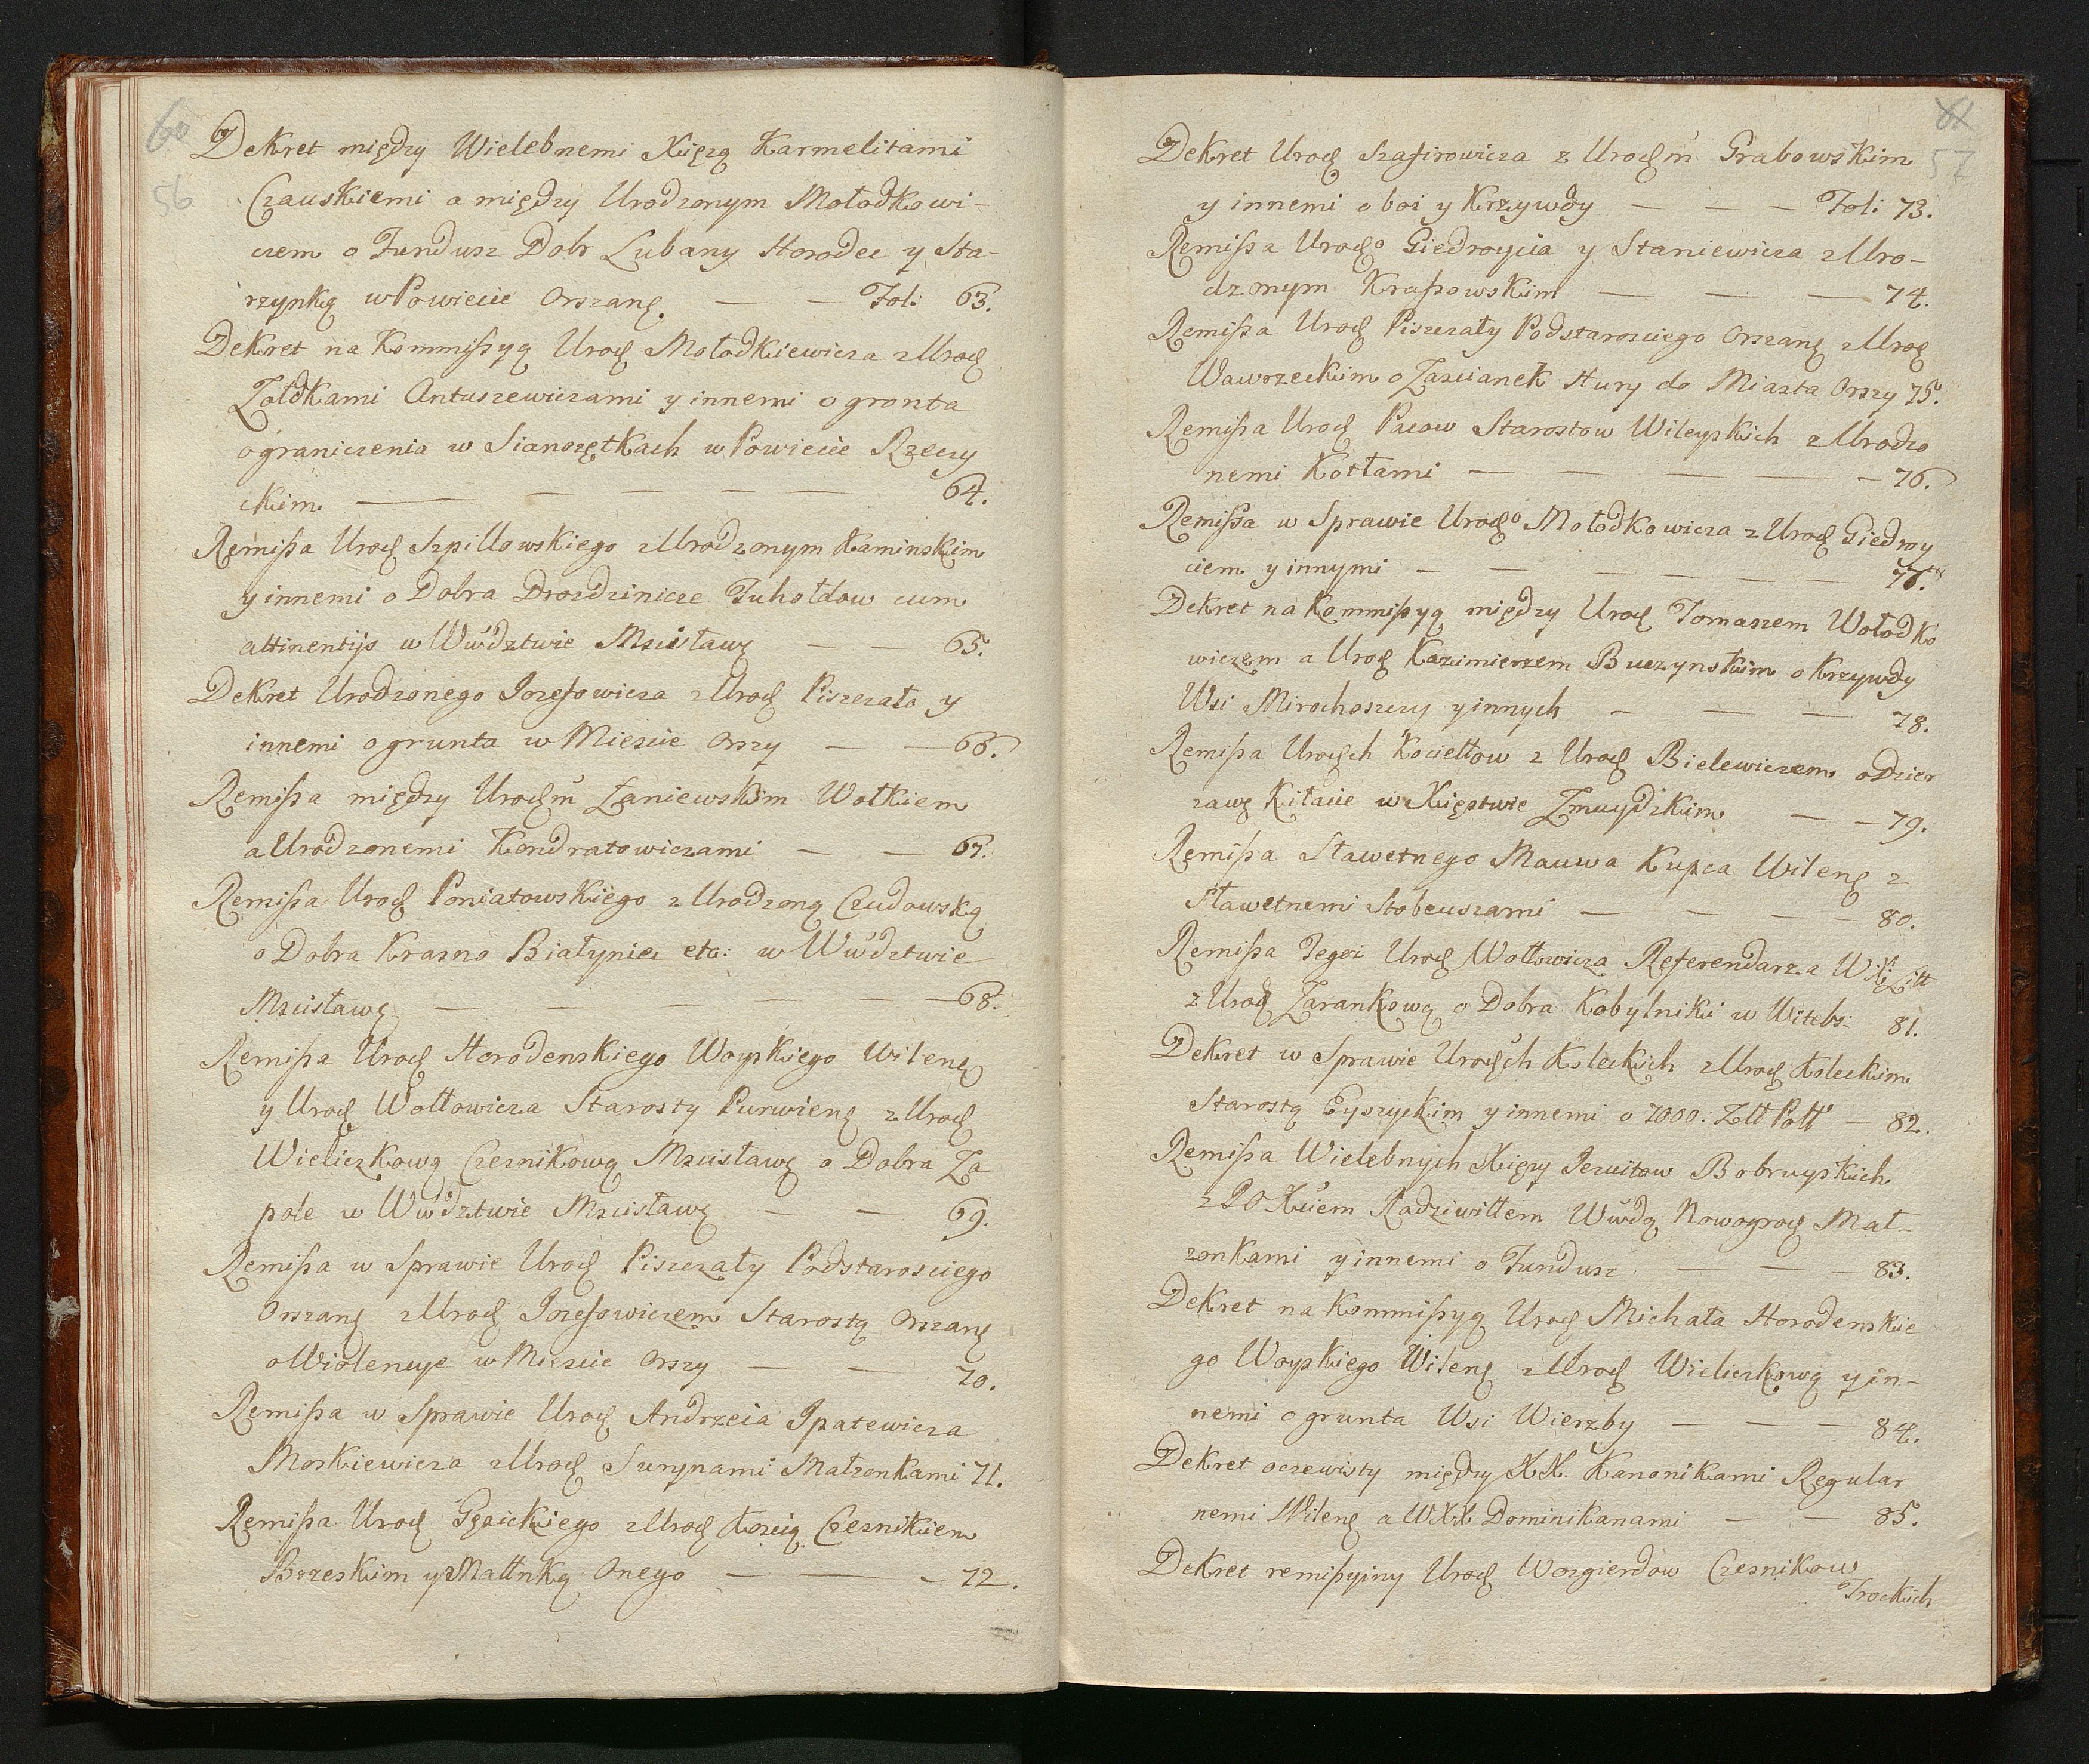 60
56
Dekret między Wielebnemi Xięzą Karmelitami
Czauskiemi a między Urodzonym Mołodkowi-
czem o Fundusz Dobr Lubany Horodec y Sta-
rzynką w Powiecie Orszanę — — Fol: 63.
Dekret na Kommissyą Urod Mołodkiewicza z Urod
Zołdkami Antuszewiczami y innemi o gronta
ograniczenia w Sianozętkach w Powiecie Rzeczy
ckim — — — — — 64.
Remissa Urod Szpillowskiego z Urodzonym Kaminskim
y innemi o Dobra Drozdzinicze Tuhołdow cum
attinentijs w Wwdztwie Mscisławę — — 65.
Dekret Urodzonego Jozefowicza z Urod Piszczało y
innemi o grunta w Miescie Orszy — — 66.
Remissa między Urodm Zaniewskim Wołkiem
a Urodzonemi Kondratowiczami — — 67.
Remissa Urod Poniatowskiego z Urodzoną Czudowską
o Dobra Krasno Białynicz etc: w Wwdztwie
Mscisławę — — — — — 68.
Remissa Urod Horodenskiego Woyskiego Wilenę
y Urod Wołłowicza Starosty Purwienę z Urod
Wieliczkową Czesnikową Mscisławę o Dobra Za
pole w Wwdztwie Mscisławę — — 69.
Remissa w Sprawie Urod Piszczały Podstarosciego
Orszanę z Urod Jozefowiczem Starostą Orszanę
o Wiolencye w Miescie Orszy — — 70.
Remissa w Sprawie Urod Andrzeia Ipatewicza
Moskiewicza z Urod Surynami Małzonkami 71.
Remissa Urod Gęzickiego z Urod Łozią Czesnikiem
Brzeskim y Małłnką Onego — — — 72.
61
57
Dekret Urod Szafirowicza z Urodm Grabowskim
y innemi o boi y Krzywdy — — — Fol: 73.
Remissa Urodo Giedroycia y Staniewicza z Uro-
dzonym Krassowskim — — — 74.
Remissa Urod Piszczały Podstarosciego Orszanę z Urod
Wawrzeckim o Zascianek Hury do Miasta Orszy 75.
Remissa Urod Pacow Starostow Wileyskich z Urodzo
nemi Kotłami — — — — — 76.
Remissa w Sprawie Urodo Mołodkowicza z Urod Giedroy
ciem y innymi — — — — — 77.
Dekret na Kommissyą między Urod Tomaszem Wołodko
wiczem a Urod Kazimierzem Buczynskim o Krzywdy
Wsi Mirochoszczy y innych — — — 78.
Remissa Urodch Kociełłow z Urod Bielewiczem o Dzier
zawę Kiłacie w Xięstwie Zmuydzkim — — 79.
Remissa Sławetnego Mauwa Kupca Wilenę z
Sławetnemi Stobeuszami — — — 80.
Remissa Tegoz Urod Wołłowicza Referendarza W X Litt
z Urod Zarankową o Dobra Kobylniki w Witebs: 81.
Dekret w Sprawie Urodch Koleckich z Urod Koleckim
Starostą Eyszyckim y innemi o 7000: Złł Poll — 82.
Remissa Wielebnych Xięzy Jezuitow Bobruyskich
z JO Xciem Radziwiłłem Wwdą Nowogrod Mał-
zonkami y innemi o Fundusz — — — 83.
Dekret na Kommissyą Urod Michała Horodenskie
go Woyskiego Wilenę z Urod Wieliczkową y in-
nemi o grunta Wsi Wierzby — — — 84.
Dekret oczewisty między XX. Kanonikami Regular
nemi Wilenę a WXX Dominikanami — — 85.
Dekret remissyiny Urod Wozgierdow Czesnikow
Trockich